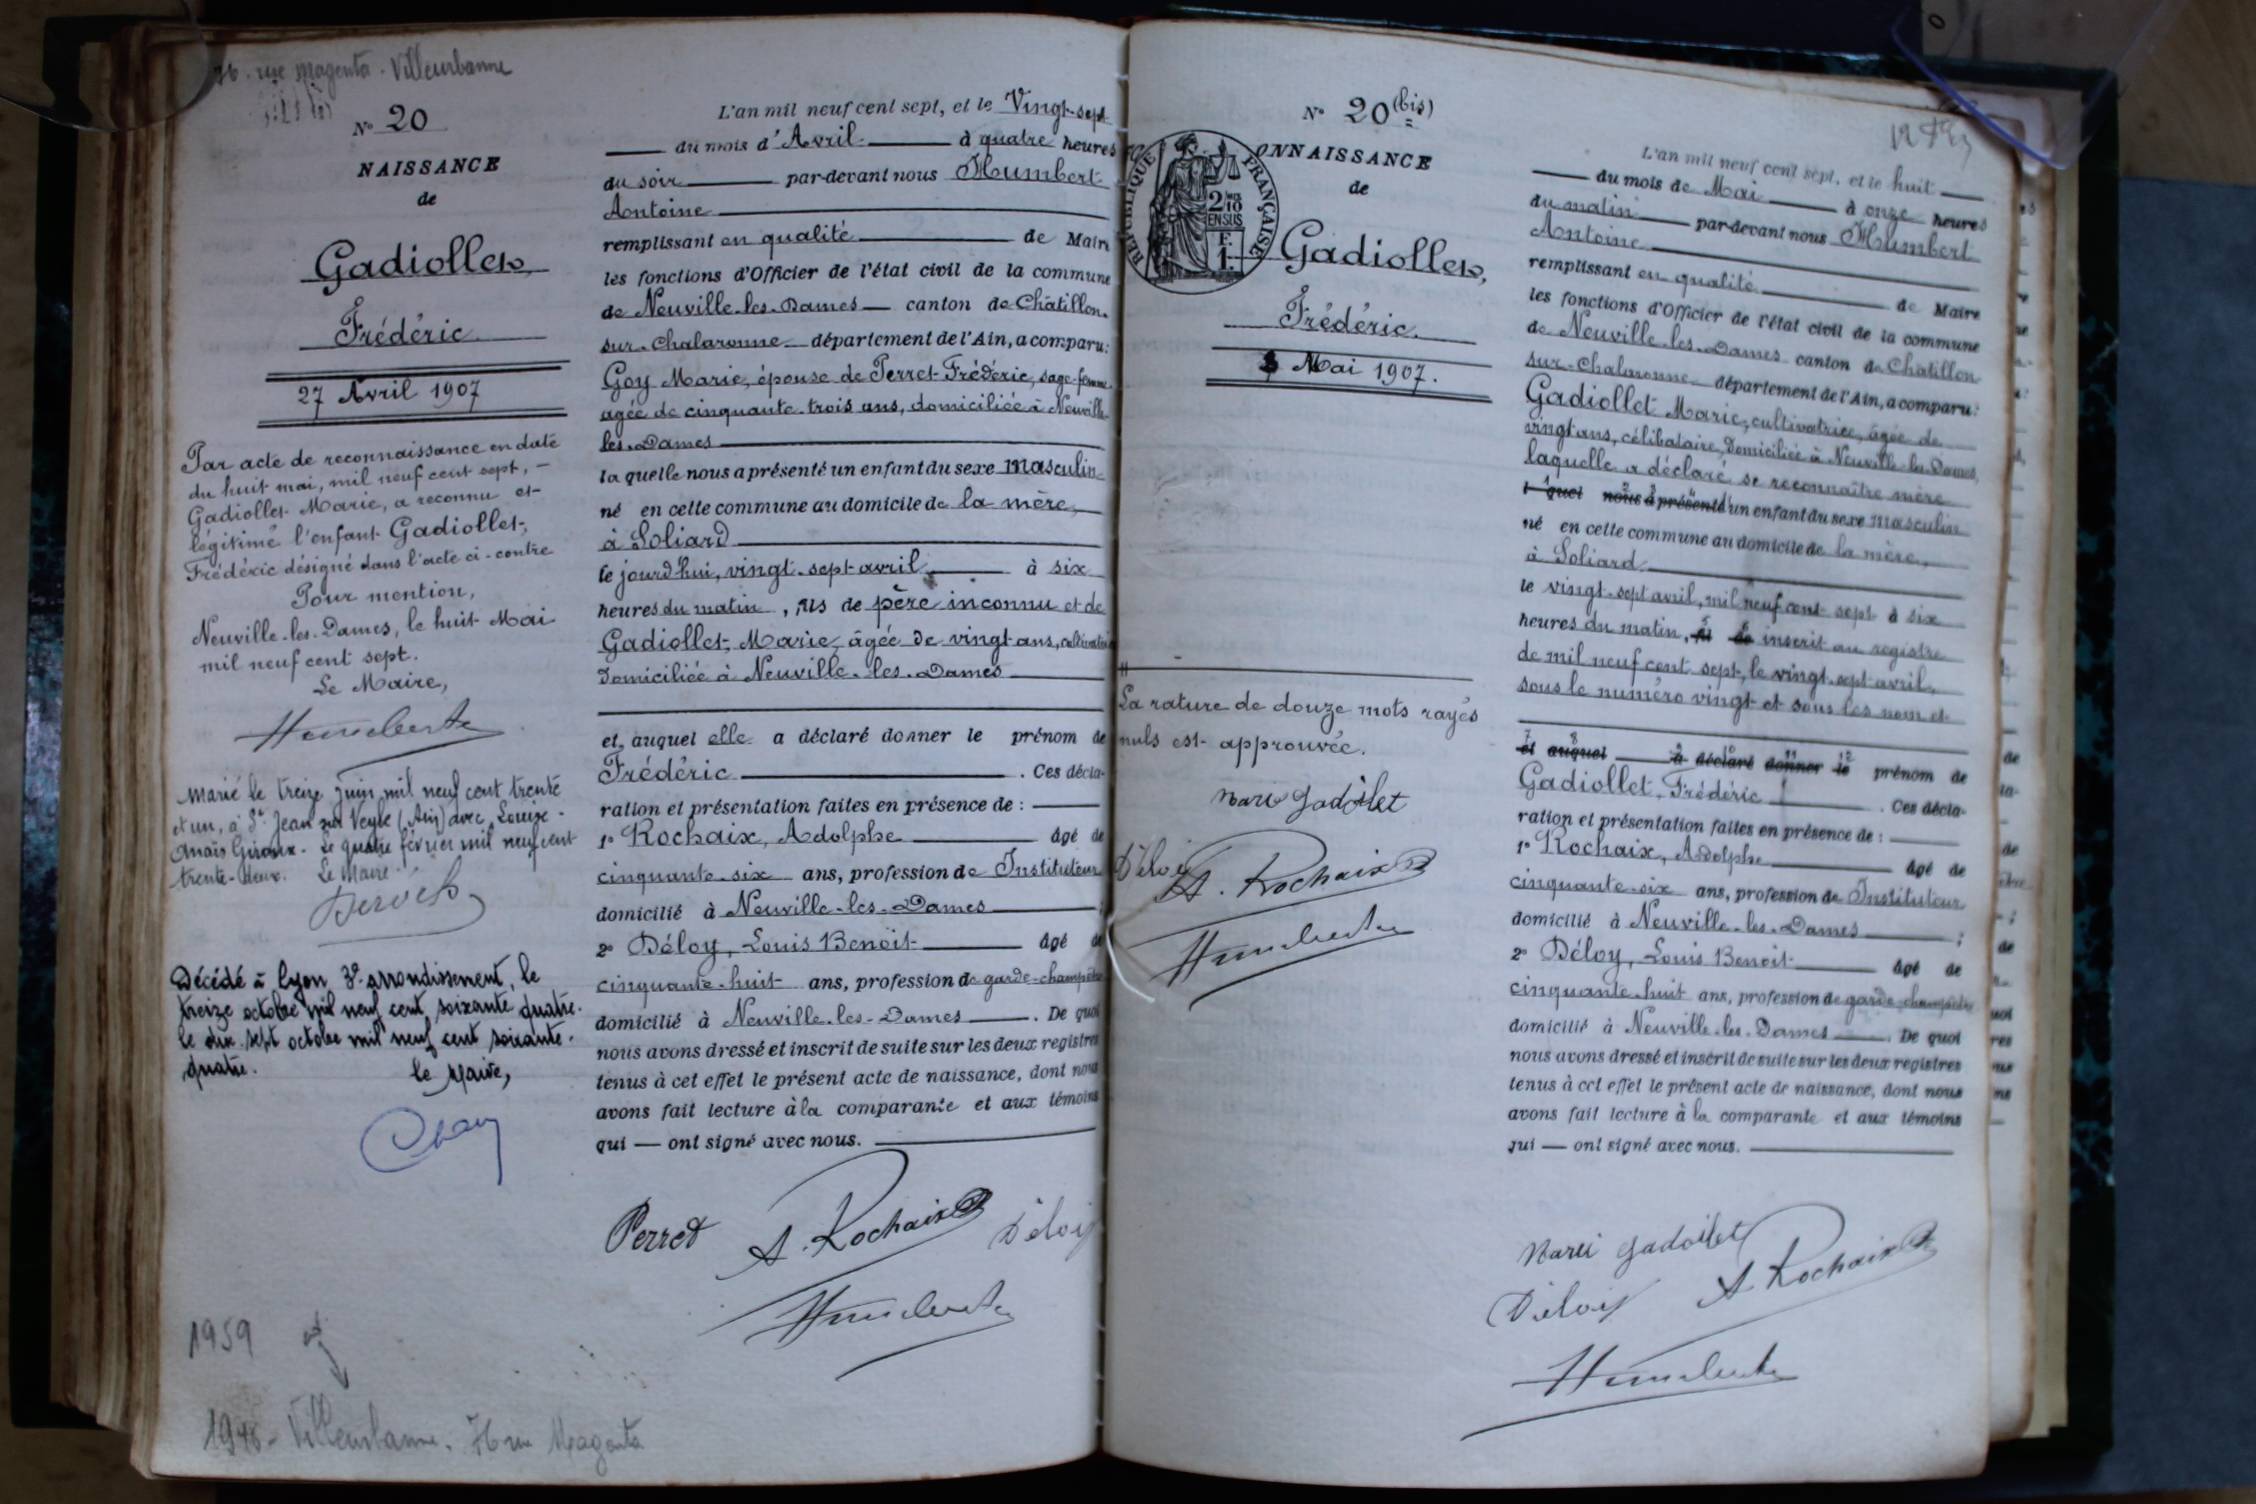 76. rue Magenta. Villeurbanne
N° 20
NAISSANCE
de
Gadiollet,
Frédéric.
27 Avril 1907
Par acte de reconnaissance en date
du huit mai, mil neuf cent sept, —
Gadiollet Marie, a reconnu et
légitimé l'enfant Gadiollet,
Frédéric désigné dans l'acte ci-contre
Pour mention,
Neuville-les-Dames, le huit Mai
mil neuf cent sept.
Le Maire,
Humbert
Marié le treize juin mil neuf cent trente
et un, à St Jean sur Veyle (Ain) avec Louise-
Anaïs Giraux. Le quatre février mil neuf cent
trente-deux. Le Maire
Décédé à Lyon 3e arrondissement, le
treize octobre mil neuf cent soixante quatre.
le dix-sept octobre mil neuf cent soixante-
quatre. le Maire,
1959
1946 - Villeurbanne. 76 rue Magenta
L'an mil neuf cent sept, et le Vingt-sept
du mois d'Avril à quatre heures
du soir par-devant nous Humbert
Antoine
remplissant en qualité de Maire
les fonctions d'Officier de l'état civil de la commune
de Neuville-les-Dames — canton de Châtillon-
sur-Chalaronne département de l'Ain, a comparu:
Goy Marie, épouse de Perret Frédéric, sage-femme
agée de cinquante-trois ans, domiciliée à Neuville-
les-Dames
la quelle nous a présenté un enfant du sexe masculin
né en cette commune au domicile de la mère,
à Soliard
le jourd'hui, vingt-sept avril à six
heures du matin, fils de père inconnu et de
Gadiollet, Marie, âgée de vingt ans, cultivatrice
domiciliée à Neuville-les-Dames
et, auquel elle a déclaré donner le prénom de
Frédéric. Ces décla-
ration et présentation faites en présence de :
1° Rochaix, Adolphe âgé de
cinquante-six ans, profession de Instituteur
domicilié à Neuville-les-Dames ;
2° Déloy, Louis Benoit âgé de
cinquante-huit ans, profession de garde-champêtre
domicilié à Neuville-les-Dames. De quoi
nous avons dressé et inscrit de suite sur les deux registres
tenus à cet effet le présent acte de naissance, dont nous
avons fait lecture à la comparante et aux témoins
qui — ont signé avec nous.
Perret A. Rochaix Déloy
Humbert
N° 20 (bis)
RÉPUBLIQUE FRANÇAISE
2/10
EN SUS
F.
1.
ONNAISSANCE
de
Gadiollet,
Frédéric.
8 Mai 1907.
La rature de douze mots rayés
nuls est approuvée.
Marie Gadoilet
Déloy A. Rochaix
Humbert
L'an mil neuf cent sept, et le huit
du mois de Mai à onze heures
du matin par-devant nous Humbert
Antoine
remplissant en qualité de Maire
les fonctions d'Officier de l'état civil de la commune
de Neuville-les-Dames canton de Châtillon
sur-Chalaronne département de l'Ain, a comparu:
Gadiollet Marie, cultivatrice, âgée de
vingt ans, célibataire, domiciliée à Neuville-les-Dames,
laquelle a déclaré se reconnaître mère
l quel nous a présenté d'un enfant du sexe masculin
né en cette commune au domicile de la mère,
à Soliard
le vingt-sept avril, mil neuf cent sept à six
heures du matin, fil de inscrit au registre
de mil neuf cent sept, le vingt-sept avril,
sous le numéro vingt et sous les nom et
et auquel a déclaré donner le prénom de
Gadiollet, Frédéric. Ces décla-
ration et présentation faites en présence de :
1° Rochaix, Adolphe âgé de
cinquante-six ans, profession de Instituteur
domicilié à Neuville-les-Dames ;
2° Déloy, Louis Benoit âgé de
cinquante-huit ans, profession de garde-champêtre
domicilié à Neuville-les-Dames. De quoi
nous avons dressé et inscrit de suite sur les deux registres
tenus à cet effet le présent acte de naissance, dont nous
avons fait lecture à la comparante et aux témoins
qui — ont signé avec nous.
Marie Gadoilet
Déloy A. Rochaix
Humbert